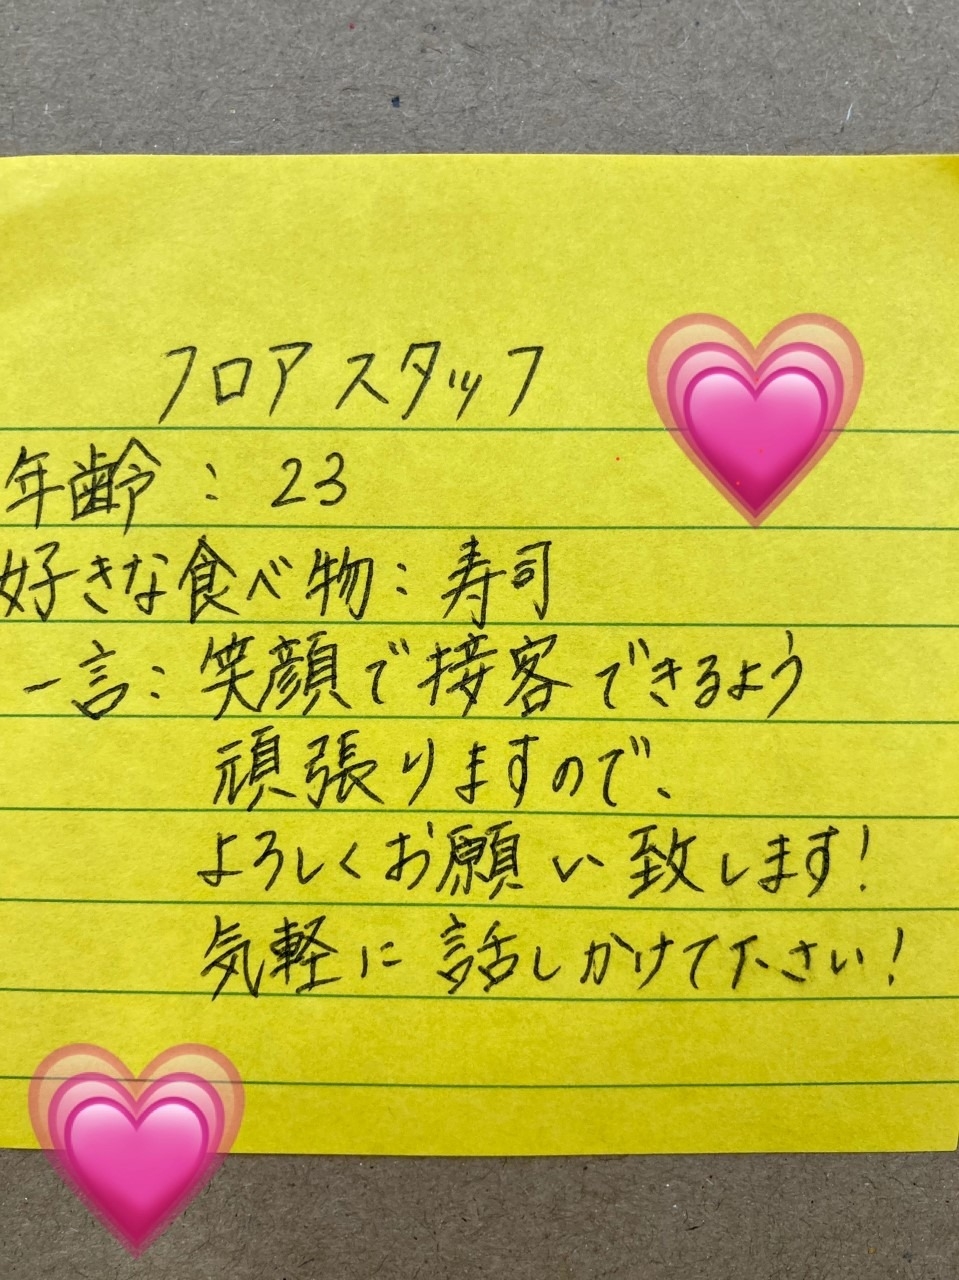 フロアスタッフ
年齢：23
好きな食べ物：寿司
一言：笑顔で接客できるよう
頑張りますので、
よろしくお願い致します！
気軽に話しかけて下さい！